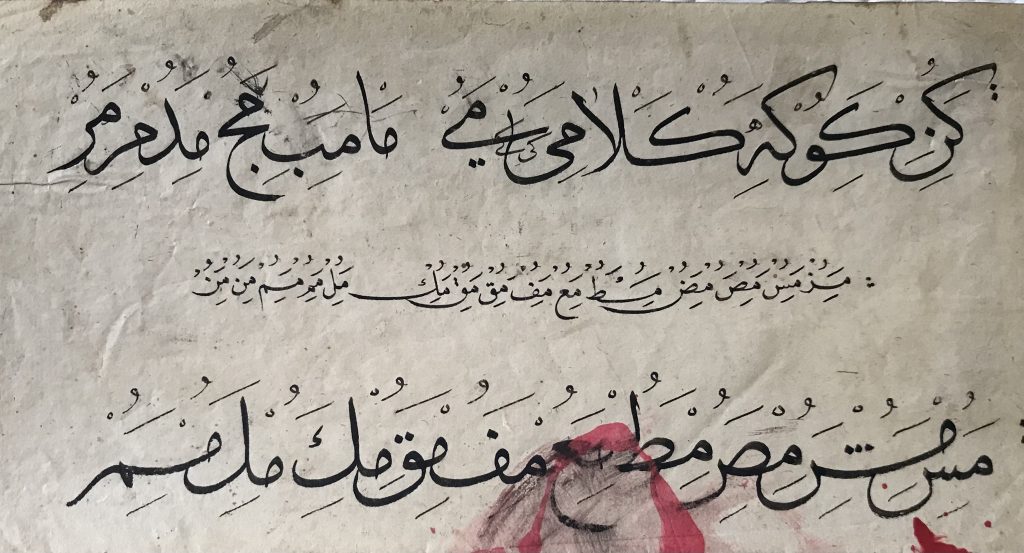 كن كو كه كلا مى مي ما مب مج مد مر مر
مز مس مص مض مسط مع مف مق مق مك مل مم مم من من
مس مش مص مط مع مف مق مك مل مم